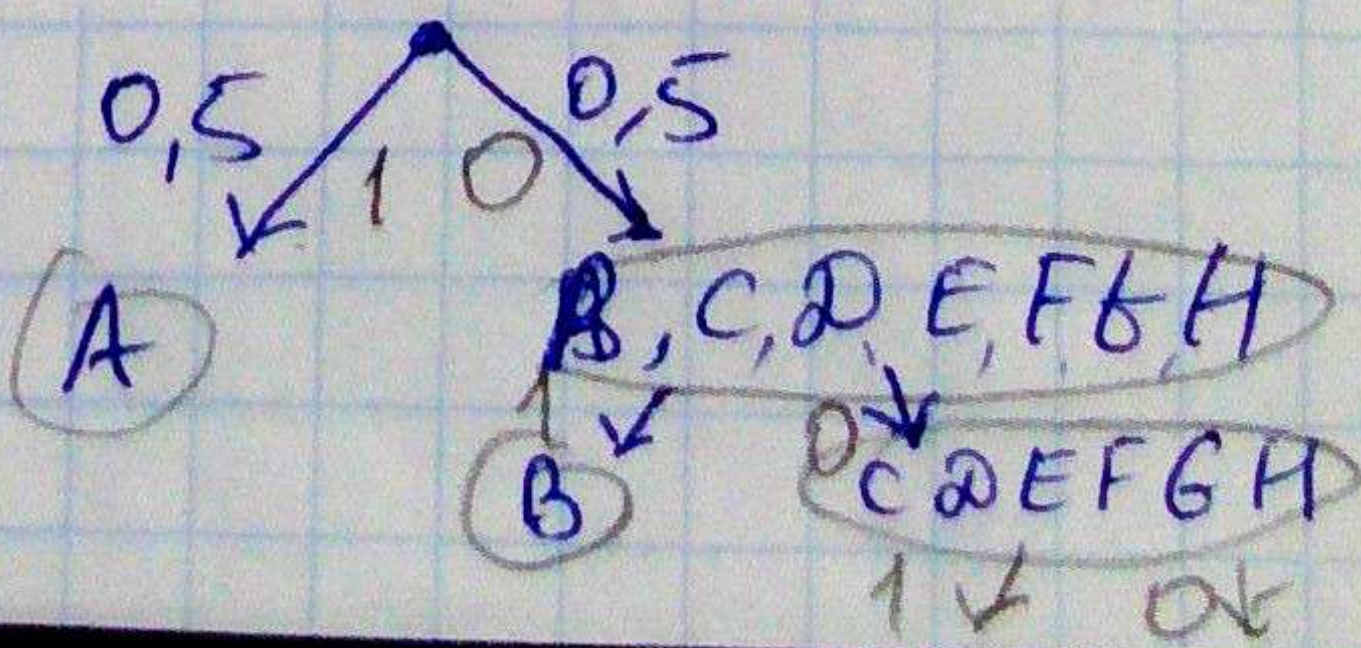 0,5 0,5
1 0
A B, C, D, E, F, G, H
1 0
B C D E F G H
1 0